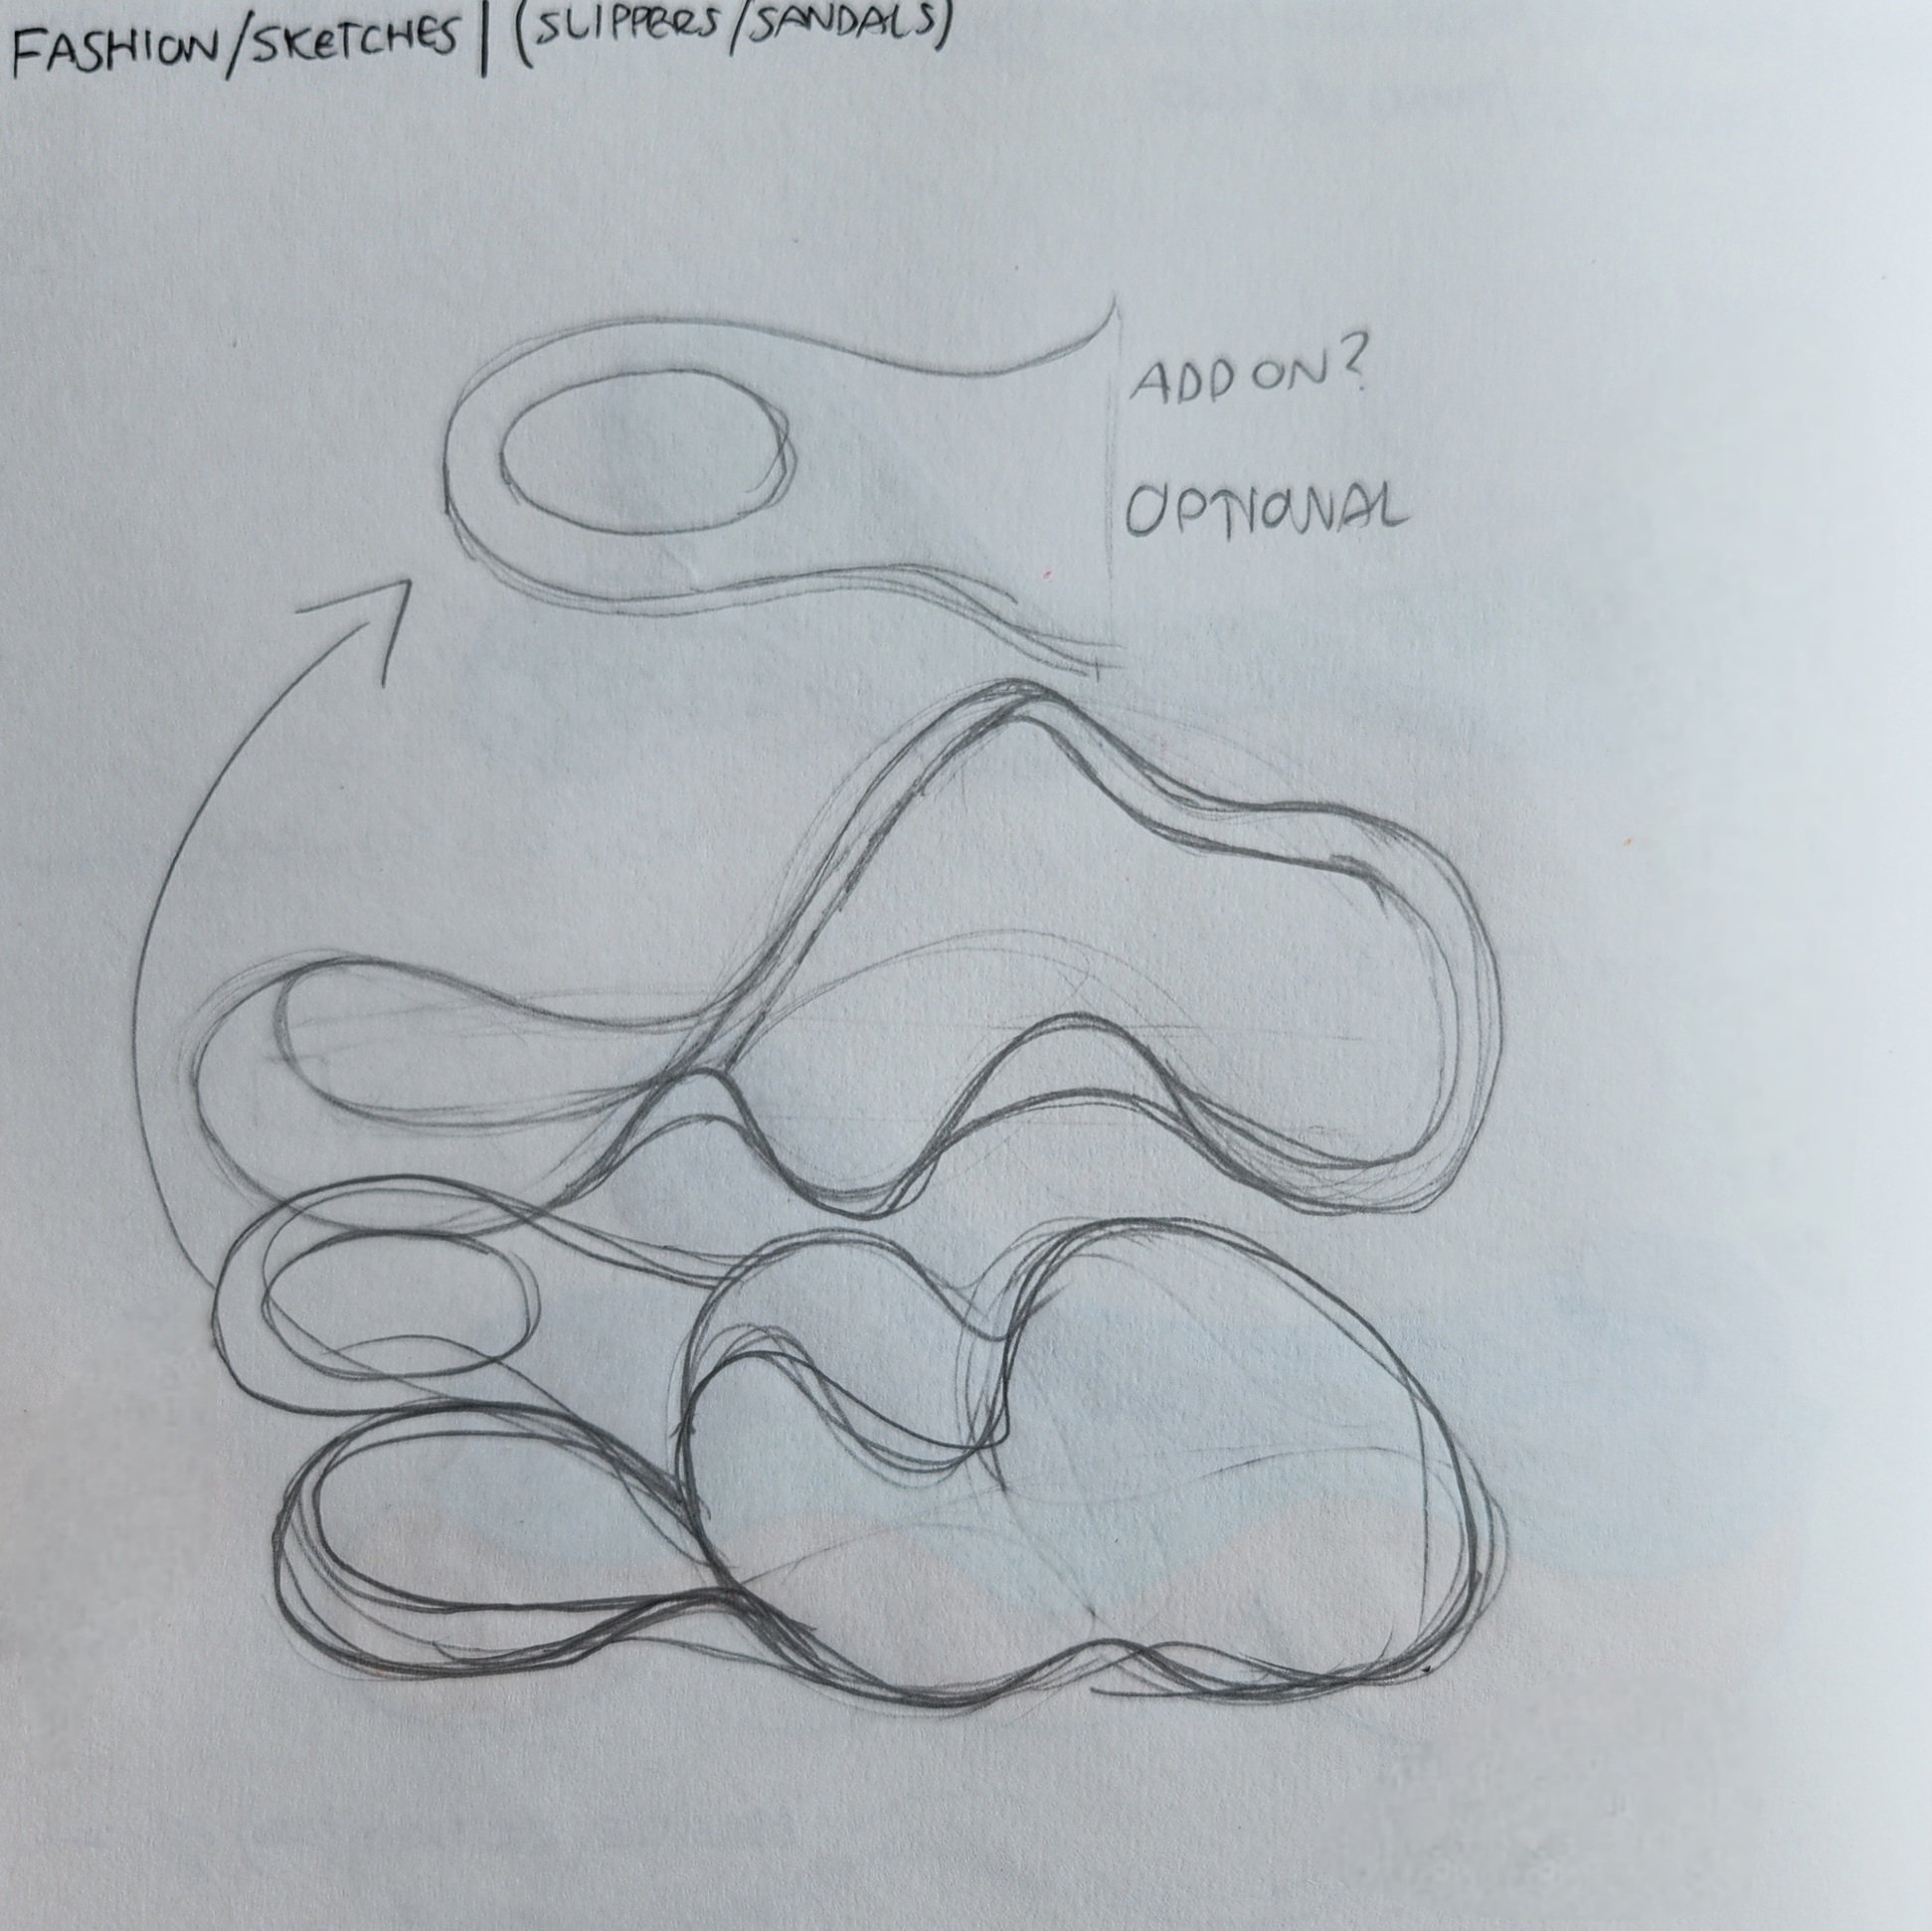 FASHION/SKETCHES | (SLIPPERS/SANDALS)
ADD ON?
OPTIONAL